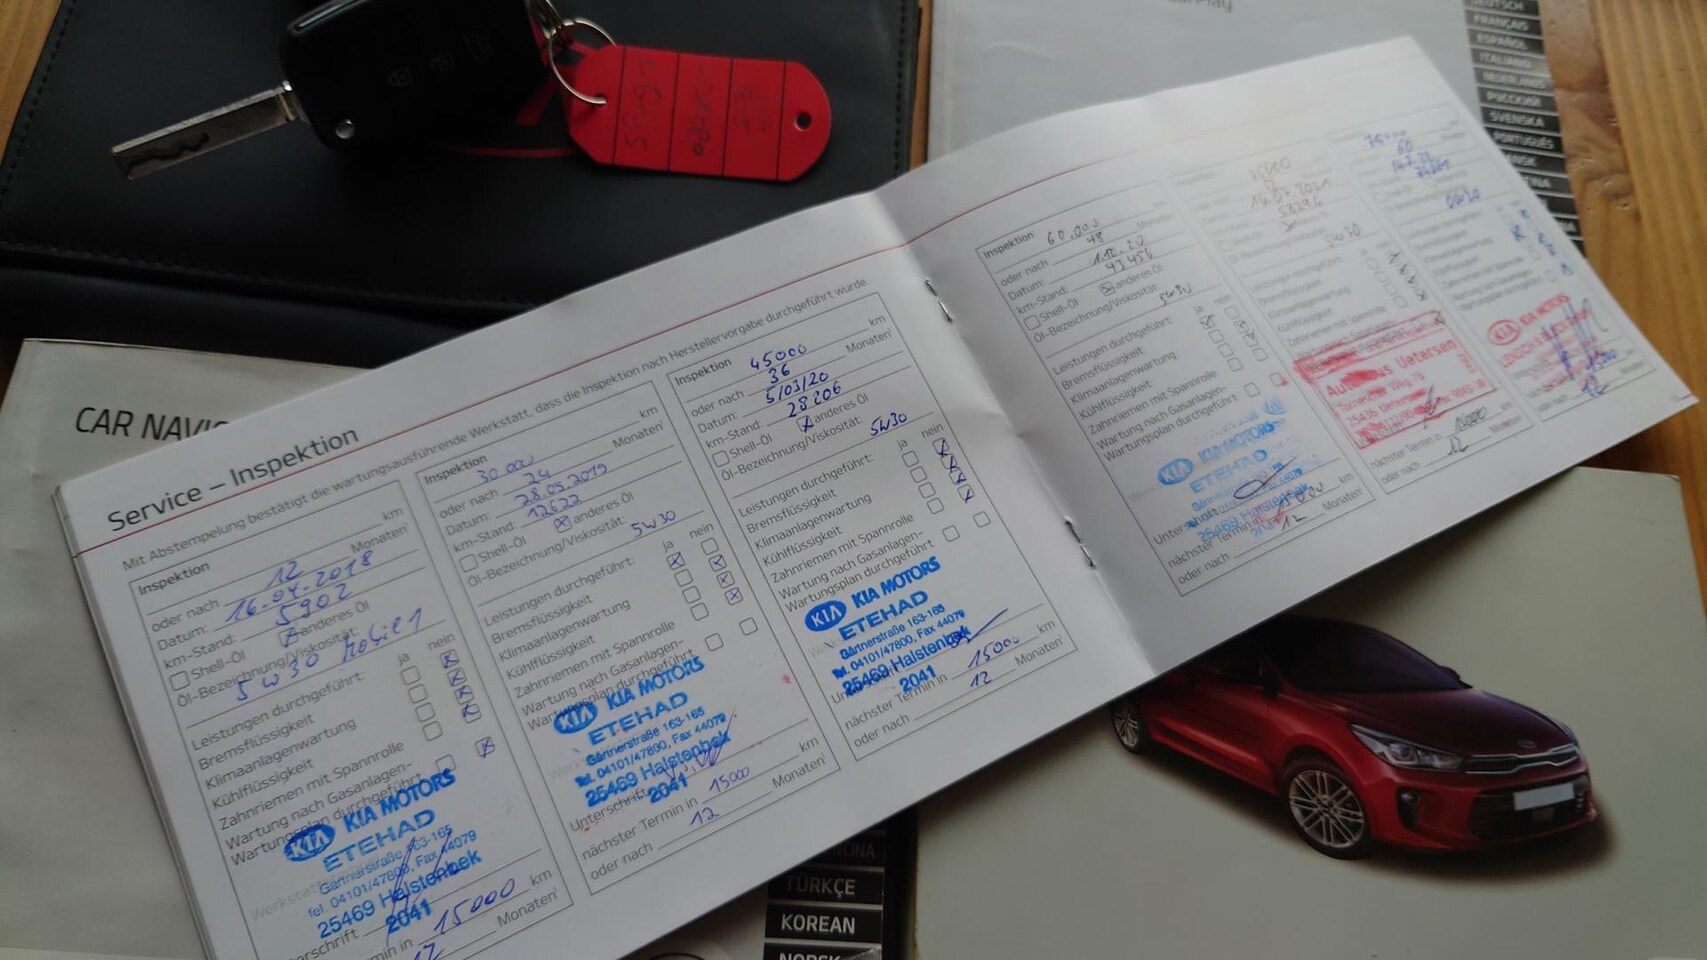 CarPlay
DEUTSCH
FRANÇAIS
ESPAÑOL
ITALIANO
NEDERLANDS
РУССКИЙ
SVENSKA
PORTUGUÊS
CAR NAVIG
Service – Inspektion
Mit Abstempelung bestätigt die wartungsausführende Werkstatt, dass die Inspektion nach Herstellervorgabe durchgeführt wurde.
Inspektion km
oder nach 12 Monaten¹
Datum: 16.04.2018
km-Stand: 5902
Shell-Öl anderes Öl
Öl-Bezeichnung/Viskosität:
5W30 Mobil 1
Leistungen durchgeführt: ja nein
Bremsflüssigkeit
Klimaanlagenwartung
Kühlflüssigkeit
Zahnriemen mit Spannrolle
Wartung nach Gasanlagen-
Wartungsplan durchgeführt
KIA KIA MOTORS
ETEHAD
Gärtnerstraße 163-165
Tel. 04101/47800, Fax 44079
25469 Halstenbek
2041
15000 km
12 Monaten¹
Inspektion 30.000 km
oder nach 24 Monaten¹
Datum: 28.05.2019
km-Stand: 12622
Shell-Öl anderes Öl
Öl-Bezeichnung/Viskosität: 5W30
Leistungen durchgeführt: ja nein
Bremsflüssigkeit
Klimaanlagenwartung
Kühlflüssigkeit
Zahnriemen mit Spannrolle
Wartung nach Gasanlagen-
Wartungsplan durchgeführt
KIA KIA MOTORS
ETEHAD
Gärtnerstraße 163-165
Tel. 04101/47800, Fax 44079
25469 Halstenbek
2041
Unterschrift
nächster Termin in 15000 km
oder nach 12 Monaten¹
Inspektion 45000 km
oder nach 36 Monaten¹
Datum: 5/03/20
km-Stand: 28206
Shell-Öl anderes Öl
Öl-Bezeichnung/Viskosität: 5W30
Leistungen durchgeführt: ja nein
Bremsflüssigkeit
Klimaanlagenwartung
Kühlflüssigkeit
Zahnriemen mit Spannrolle
Wartung nach Gasanlagen-
Wartungsplan durchgeführt
KIA KIA MOTORS
ETEHAD
Gärtnerstraße 163-165
Tel. 04101/47800, Fax 44079
25469 Halstenbek
2041
nächster Termin in 15000 km
oder nach 12 Monaten¹
Inspektion 60.000 km
oder nach 48 Monaten
Datum: 1.12.20
km-Stand: 43456
Shell-Öl anderes Öl
Öl-Bezeichnung/Viskosität: 5W30
Leistungen durchgeführt: ja nein
Bremsflüssigkeit
Klimaanlagenwartung
Kühlflüssigkeit
Zahnriemen mit Spannrolle
Wartung nach Gasanlagen-
Wartungsplan durchgeführt
KIA KIA MOTORS
ETEHAD
25469 Halstenbek
nächster Termin in km
oder nach 12 Monaten¹
5W30
Leistungen durchgeführt
Klimaanlagenwartung
Kühlflüssigkeit
Zahnriemen mit Spannrolle
Autohaus Uetersen
25436 Uetersen
nächster Termin in 15000 km
oder nach 12 Monaten
75000
60
KIA KIA MOTORS
15000
12
TÜRKÇE
KOREAN
NORSK